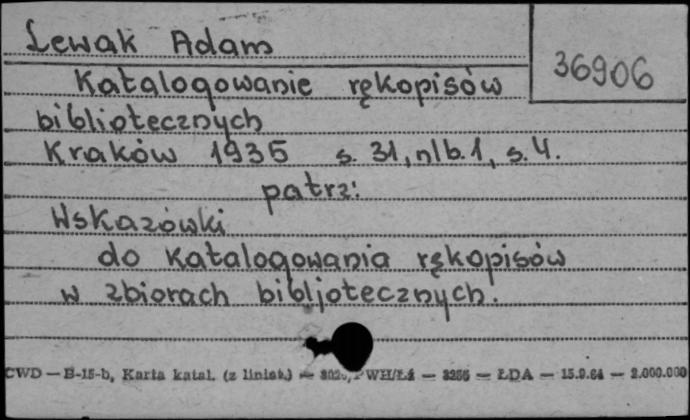 Lewak Adam
36906
Katalogowanie rękopisów
bibliotecznych
Kraków 1935 s. 31, nlb. 1, s. 4.
patrz:
Wskazówki
do katalogowania rękopisów
w zbiorach bibljotecznych.
CWD — B-15-b, Karta katal. (z liniat.) — WH/Łź — 3256 — ŁDA — 15.9.64 — 2.000.000